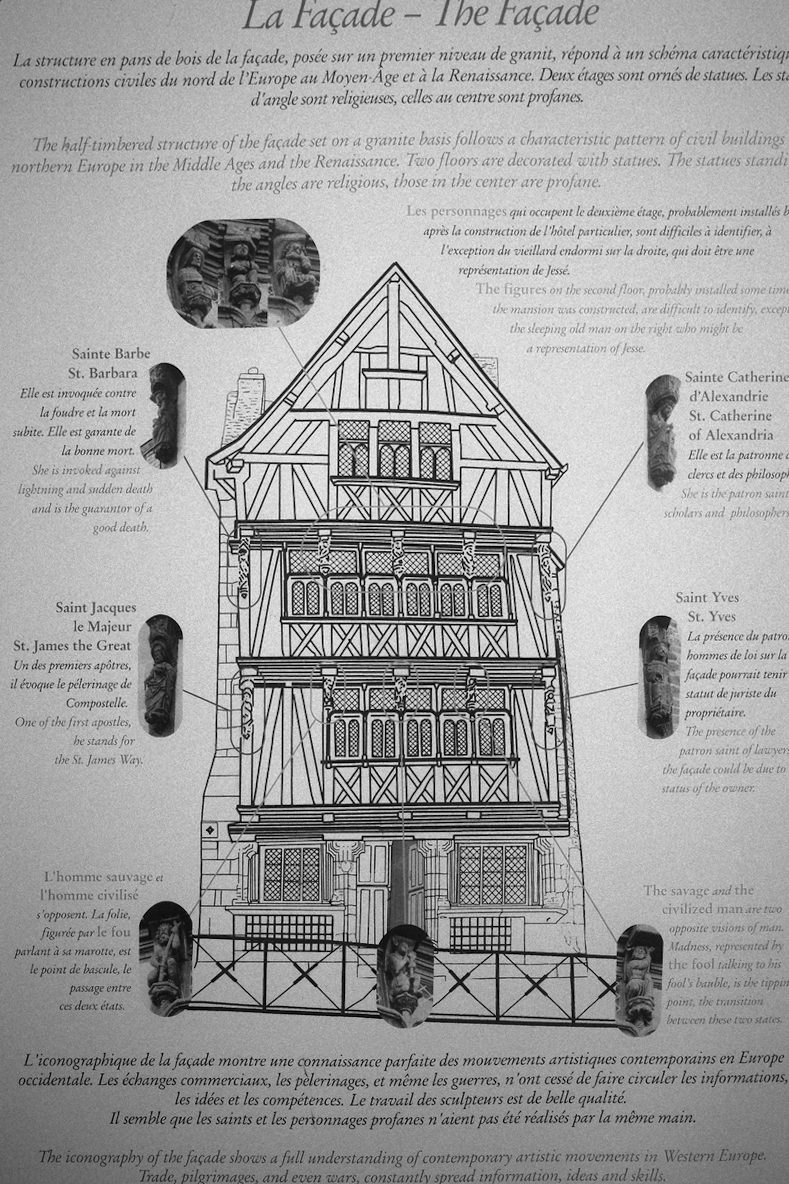 La Façade – The Façade
La structure en pans de bois de la façade, posée sur un premier niveau de granit, répond à un schéma
constructions civiles du nord de l'Europe au Moyen-Age et à la Renaissance. Deux étages sont ornés de statues. Les
d'angle sont religieuses, celles au centre sont profanes.
The half-timbered structure of the façade set on a granite basis follows a characteristic pattern of civil buildings
northern Europe in the Middle Ages and the Renaissance. Two floors are decorated with statues. The statues
the angles are religious, those in the center are profane.
Les personnages qui occupent le deuxième étage, probablement installés
après la construction de l'hôtel particulier, sont difficiles à identifier, à
l'exception du vieillard endormi sur la droite, qui doit être une
représentation de Jessé.
The figures on the second floor, probably installed some
the mansion was constructed, are difficult to identify,
the sleeping old man on the right who might be
a representation of Jesse.
Sainte Barbe
St. Barbara
Elle est invoquée contre
la foudre et la mort
subite. Elle est garante de
la bonne mort.
She is invoked against
lightning and sudden death
and is the guarantor of a
good death.
Sainte Catherine
d'Alexandrie
St. Catherine
of Alexandria
Elle est la patronne
clercs et des
She is the patron saint
scholars and philosophers
Saint Jacques
le Majeur
St. James the Great
Un des premiers apôtres,
il évoque le pélerinage de
Compostelle.
One of the first apostles,
he stands for
the St. James Way.
Saint Yves
St. Yves
La présence du
hommes de loi sur la
façade pourrait tenir
statut de juriste du
propriétaire.
The presence of the
patron saint of
the façade could be due to
status of the owner.
L'homme sauvage et
l'homme civilisé
s'opposent. La folie,
figurée par le fou
parlant à sa marotte, est
le point de bascule, le
passage entre
ces deux états.
The savage and the
civilized man are two
opposite visions of man.
Madness, represented by
the fool talking to his
fool's bauble, is the
point, the transition
between these two states.
L'iconographique de la façade montre une connaissance parfaite des mouvements artistiques contemporains en Europe
occidentale. Les échanges commerciaux, les pèlerinages, et même les guerres, n'ont cessé de faire circuler les informations,
les idées et les compétences. Le travail des sculpteurs est de belle qualité.
Il semble que les saints et les personnages profanes n'aient pas été réalisés par la même main.
The iconography of the façade shows a full understanding of contemporary artistic movements in Western Europe.
Trade, pilgrimages, and even wars, constantly spread information, ideas and skills.